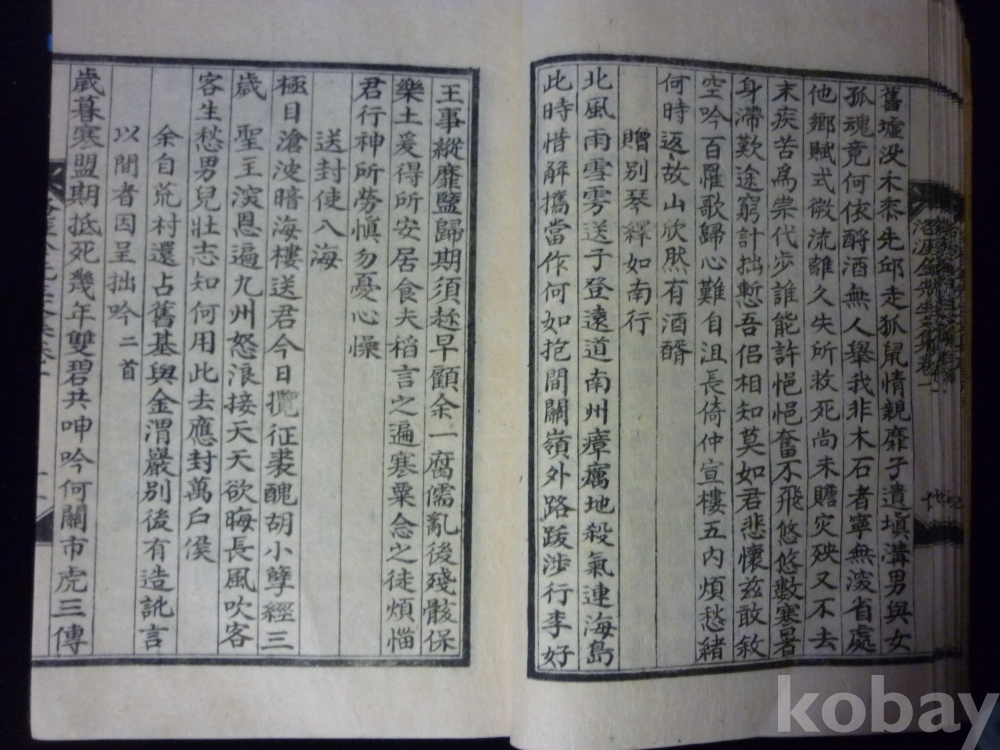 舊墟没禾黍先邱走狐鼠情親靡孑遺塡溝男與女
孤魂竟何依酹酒無人擧我非木石者寧無淚省處
他鄉賦式微流離久失所救死尚未贍灾殃又不去
末疾苦爲祟代步誰能許悒悒奮不飛悠悠數寒暑
身滯歎途窮計拙慙吾侶相知莫如君悲懷玆敢敘
空吟百罹歌歸心難自沮長倚仲宣樓五內煩愁緖
何時返故山欣然有酒醑
贈別琴繹如南行
北風雨雪雱送子登遠道南州瘴癘地殺氣連海島
此時惜解攜當作何如抱間關嶺外路跋涉行李好
王事縱靡盬歸期須趁早顧余一腐儒亂後殘骸保
樂土爰得所安居食夫稻言之遍塞粟念之徒煩惱
君行神所勞愼勿憂心懆
送封使入海
極目滄波暗海樓送君今日攬征裘醜胡小孽經三
歲 聖王深恩遍九州怒浪接天天欲晦長風吹客
客生愁男兒壯志知何用此去應封萬戶侯
余自荒村還占舊基與金渭巖別後有造訛言
以間者因呈拙吟二首
歲暮寒盟期抵死幾年雙碧共呻吟何關市虎三傳
kobay